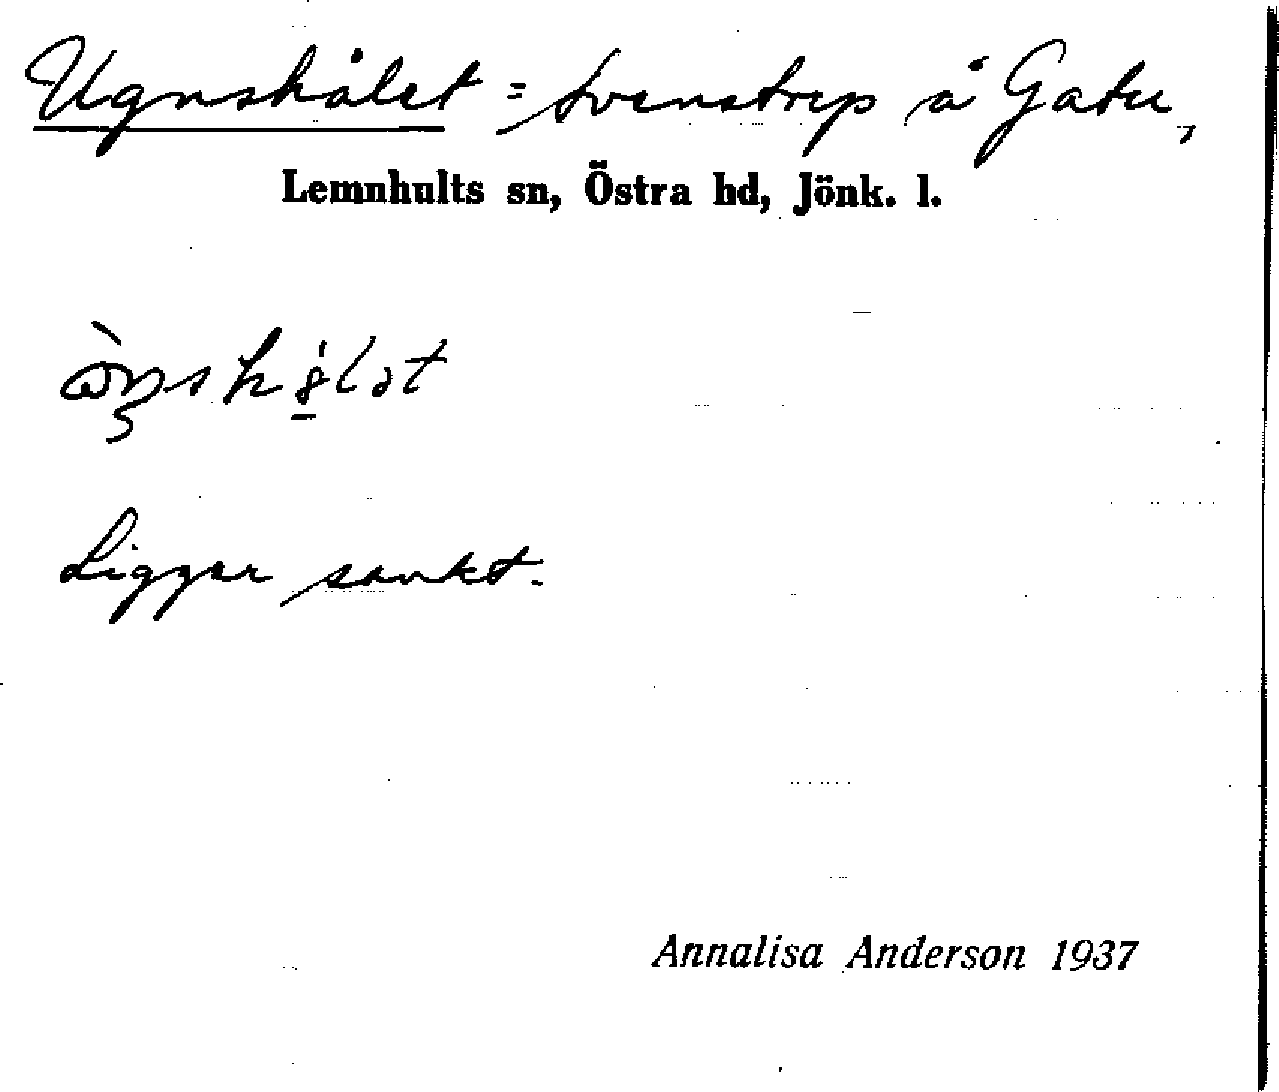 Ugnshålet = Svenstorp å Gatu,
Lemnhults sn, Östra hd, Jönk. l.
Ligger sankt.
Annalisa Anderson 1937